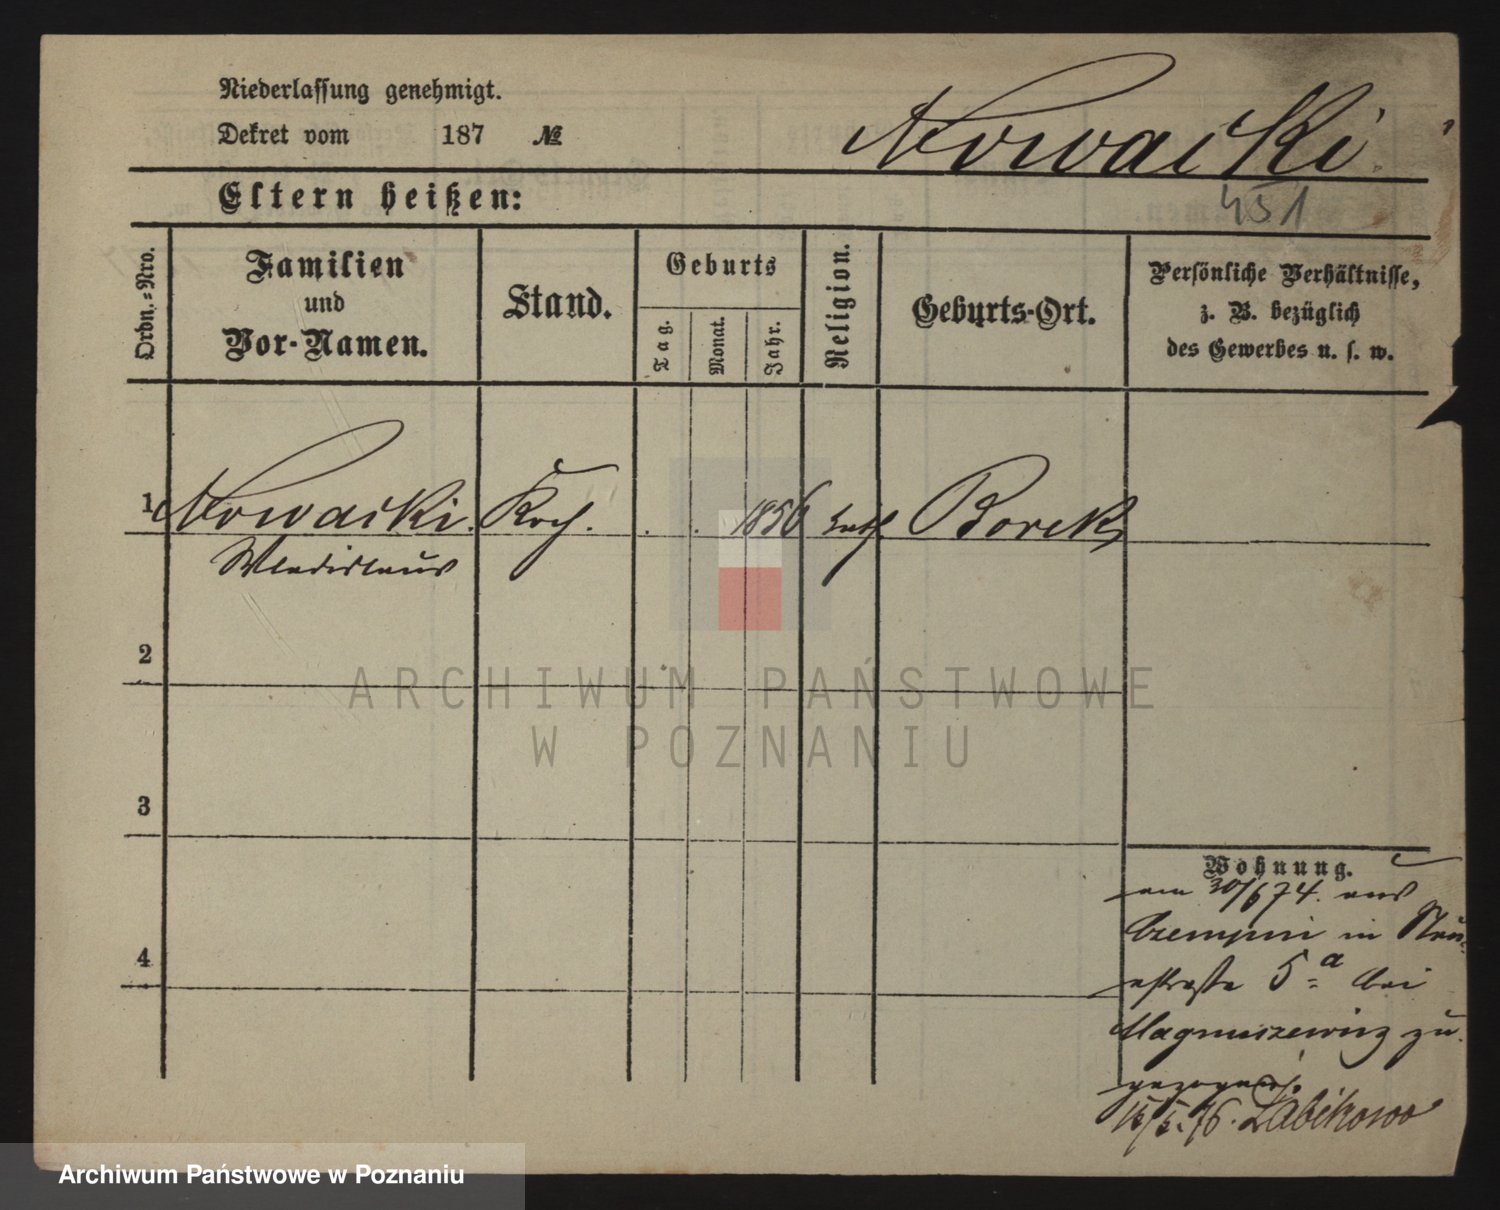 Niederlassung genehmigt.
Dekret vom 187 №
Nowacki
Eltern heißen:
451
Ordn.-Nro.
Familien
und
Vor-Namen.
Stand.
Geburts
Tag.
Monat.
Jahr.
Religion.
Geburts-Ort.
Persönliche Verhältnisse,
z. B. bezüglich
des Gewerbes u. s. w.
1 Nowacki. Koch. 1856 kath. Borek
Wladislaus
2
3
4
Wohnung.
am 30/6 74. aus
Czempin in
5a bei
Magnuszewicz zu-
gezogen.
15/5.76. Zabikowo
ARCHIWUM PAŃSTWOWE
W POZNANIU
Archiwum Państwowe w Poznaniu